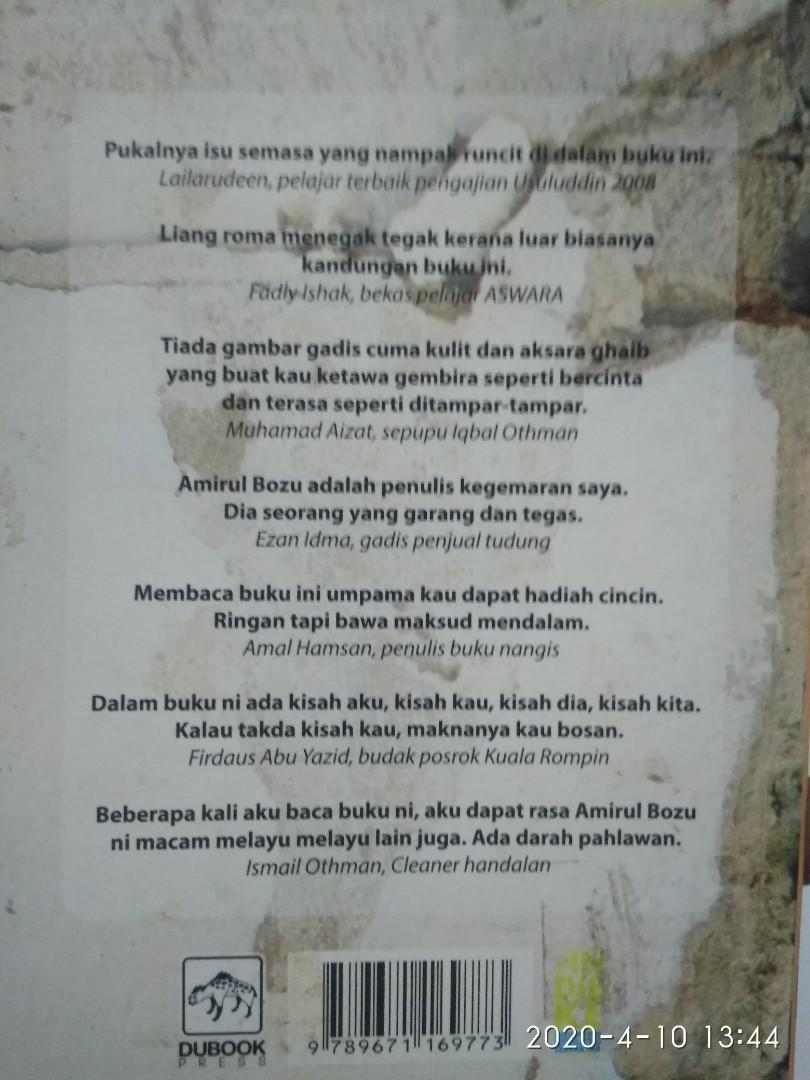 Pukalnya isu semasa yang nampak runcit di dalam buku ini.
Lailarudeen, pelajar terbaik pengajian Usuluddin 2008
Liang roma menegak tegak kerana luar biasanya
kandungan buku ini.
Fadly Ishak, bekas pelajar ASWARA
Tiada gambar gadis cuma kulit dan aksara ghaib
yang buat kau ketawa gembira seperti bercinta
dan terasa seperti ditampar-tampar.
Muhamad Aizat, sepupu Iqbal Othman
Amirul Bozu adalah penulis kegemaran saya.
Dia seorang yang garang dan tegas.
Ezan Idma, gadis penjual tudung
Membaca buku ini umpama kau dapat hadiah cincin.
Ringan tapi bawa maksud mendalam.
Amal Hamsan, penulis buku nangis
Dalam buku ni ada kisah aku, kisah kau, kisah dia, kisah kita.
Kalau takda kisah kau, maknanya kau bosan.
Firdaus Abu Yazid, budak posrok Kuala Rompin
Beberapa kali aku baca buku ni, aku dapat rasa Amirul Bozu
ni macam melayu melayu lain juga. Ada darah pahlawan.
Ismail Othman, Cleaner handalan
DUBOOK
PRESS
9 789671 169773
2020-4-10 13:44